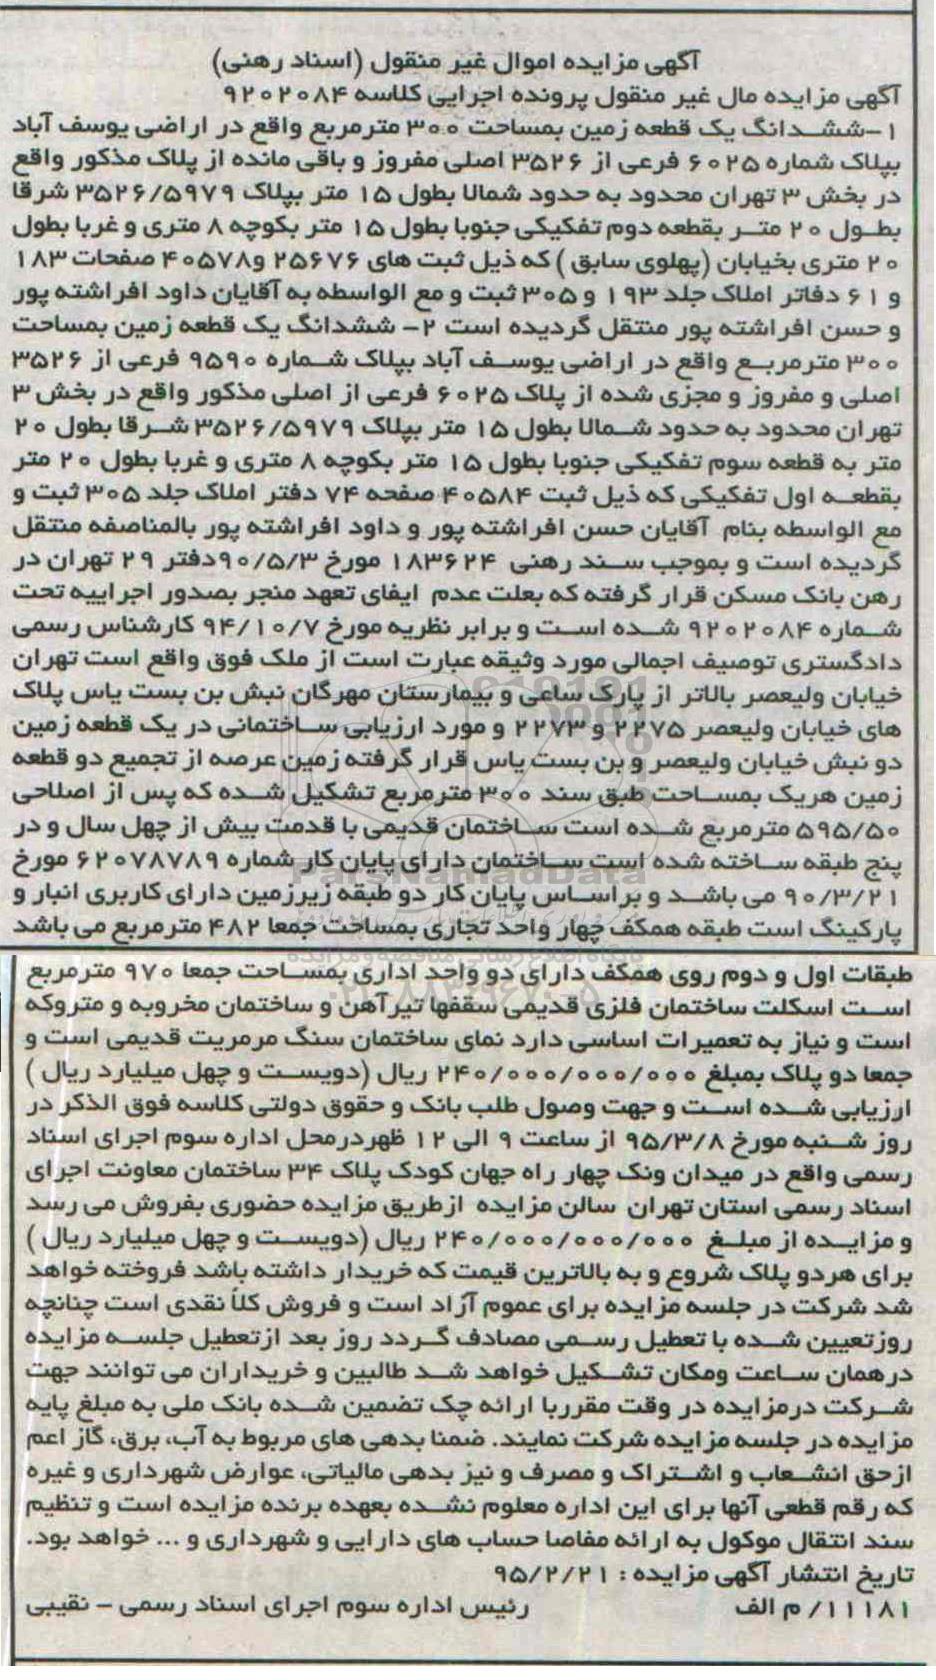 آگهی مزایده اموال غیر منقول (اسناد رهنی)
آگهی مزایده مال غیر منقول پرونده اجرایی کلاسه ۹۲۰۲۰۸۴
۱-ششدانگ یک قطعه زمین بمساحت ۳۰۰ مترمربع واقع در اراضی یوسف آباد
بپلاک شماره ۶۰۲۵ فرعی از ۳۵۲۶ اصلی مفروز و باقی مانده از پلاک مذکور واقع
در بخش ۳ تهران محدود به حدود شمالا بطول ۱۵ متر بپلاک ۳۵۲۶/۵۹۷۹ شرقا
بطول ۲۰ متر بقطعه دوم تفکیکی جنوبا بطول ۱۵ متر بکوچه ۸ متری و غربا بطول
۲۰ متری بخیابان (پهلوی سابق) که ذیل ثبت های ۲۵۶۷۶ و۴۰۵۷۸ صفحات ۱۸۳
و ۶۱ دفاتر املاک جلد ۱۹۳ و ۳۰۵ ثبت و مع الواسطه به آقایان داود افراشته پور
و حسن افراشته پور منتقل گردیده است ۲- ششدانگ یک قطعه زمین بمساحت
۳۰۰ مترمربع واقع در اراضی یوسف آباد بپلاک شماره ۹۵۹۰ فرعی از ۳۵۲۶
اصلی و مفروز و مجزی شده از پلاک ۶۰۲۵ فرعی از اصلی مذکور واقع در بخش ۳
تهران محدود به حدود شمالا بطول ۱۵ متر بپلاک ۳۵۲۶/۵۹۷۹ شرقا بطول ۲۰
متر به قطعه سوم تفکیکی جنوبا بطول ۱۵ متر بکوچه ۸ متری و غربا بطول ۲۰ متر
بقطعه اول تفکیکی که ذیل ثبت ۴۰۵۸۴ صفحه ۷۴ دفتر املاک جلد ۳۰۵ ثبت و
مع الواسطه بنام آقایان حسن افراشته پور و داود افراشته پور بالمناصفه منتقل
گردیده است و بموجب سند رهنی ۱۸۳۶۲۴ مورخ ۹۰/۵/۳دفتر ۲۹ تهران در
رهن بانک مسکن قرار گرفته که بعلت عدم ایفای تعهد منجر بصدور اجراییه تحت
شماره ۹۲۰۲۰۸۴ شده است و برابر نظریه مورخ ۹۴/۱۰/۷ کارشناس رسمی
دادگستری توصیف اجمالی مورد وثیقه عبارت است از ملک فوق واقع است تهران
خیابان ولیعصر بالاتر از پارک ساعی و بیمارستان مهرگان نبش بن بست یاس پلاک
های خیابان ولیعصر ۲۲۷۵ و ۲۲۷۳ و مورد ارزیابی ساختمانی در یک قطعه زمین
دو نبش خیابان ولیعصر و بن بست یاس قرار گرفته زمین عرصه از تجمیع دو قطعه
زمین هریک بمساحت طبق سند ۳۰۰ مترمربع تشکیل شده که پس از اصلاحی
۵۹۵/۵۰ مترمربع شده است ساختمان قدیمی با قدمت بیش از چهل سال و در
پنج طبقه ساخته شده است ساختمان دارای پایان کار شماره ۶۲۰۷۸۷۸۹ مورخ
۹۰/۳/۲۱ می باشد و براساس پایان کار دو طبقه زیرزمین دارای کاربری انبار و
پارکینگ است طبقه همکف چهار واحد تجاری بمساحت جمعا ۴۸۲ مترمربع می باشد
طبقات اول و دوم روی همکف دارای دو واحد اداری بمساحت جمعا ۹۷۰ مترمربع
است اسکلت ساختمان فلزی قدیمی سقفها تیرآهن و ساختمان مخروبه و متروکه
است و نیاز به تعمیرات اساسی دارد نمای ساختمان سنگ مرمریت قدیمی است و
جمعا دو پلاک بمبلغ ۲۴۰/۰۰۰/۰۰۰/۰۰۰ ریال (دویست و چهل میلیارد ریال )
ارزیابی شده است و جهت وصول طلب بانک و حقوق دولتی کلاسه فوق الذکر در
روز شنبه مورخ ۹۵/۳/۸ از ساعت ۹ الی ۱۲ ظهردرمحل اداره سوم اجرای اسناد
رسمی واقع در میدان ونک چهار راه جهان کودک پلاک ۳۴ ساختمان معاونت اجرای
اسناد رسمی استان تهران سالن مزایده ازطریق مزایده حضوری بفروش می رسد
و مزایده از مبلغ ۲۴۰/۰۰۰/۰۰۰/۰۰۰ ریال (دویست و چهل میلیارد ریال )
برای هردو پلاک شروع و به بالاترین قیمت که خریدار داشته باشد فروخته خواهد
شد شرکت در جلسه مزایده برای عموم آزاد است و فروش کلاً نقدی است چنانچه
روزتعیین شده با تعطیل رسمی مصادف گردد روز بعد ازتعطیل جلسه مزایده
درهمان ساعت ومکان تشکیل خواهد شد طالبین و خریداران می توانند جهت
شرکت درمزایده در وقت مقرربا ارائه چک تضمین شده بانک ملی به مبلغ پایه
مزایده در جلسه مزایده شرکت نمایند. ضمنا بدهی های مربوط به آب، برق، گاز اعم
ازحق انشعاب و اشتراک و مصرف و نیز بدهی مالیاتی، عوارض شهرداری و غیره
که رقم قطعی آنها برای این اداره معلوم نشده بعهده برنده مزایده است و تنظیم
سند انتقال موکول به ارائه مفاصا حساب های دارایی و شهرداری و ... خواهد بود.
تاریخ انتشار آگهی مزایده : ۹۵/۲/۲۱
۱۱۱۸۱/ م الف رئیس اداره سوم اجرای اسناد رسمی - نقیبی
ParsNamadData